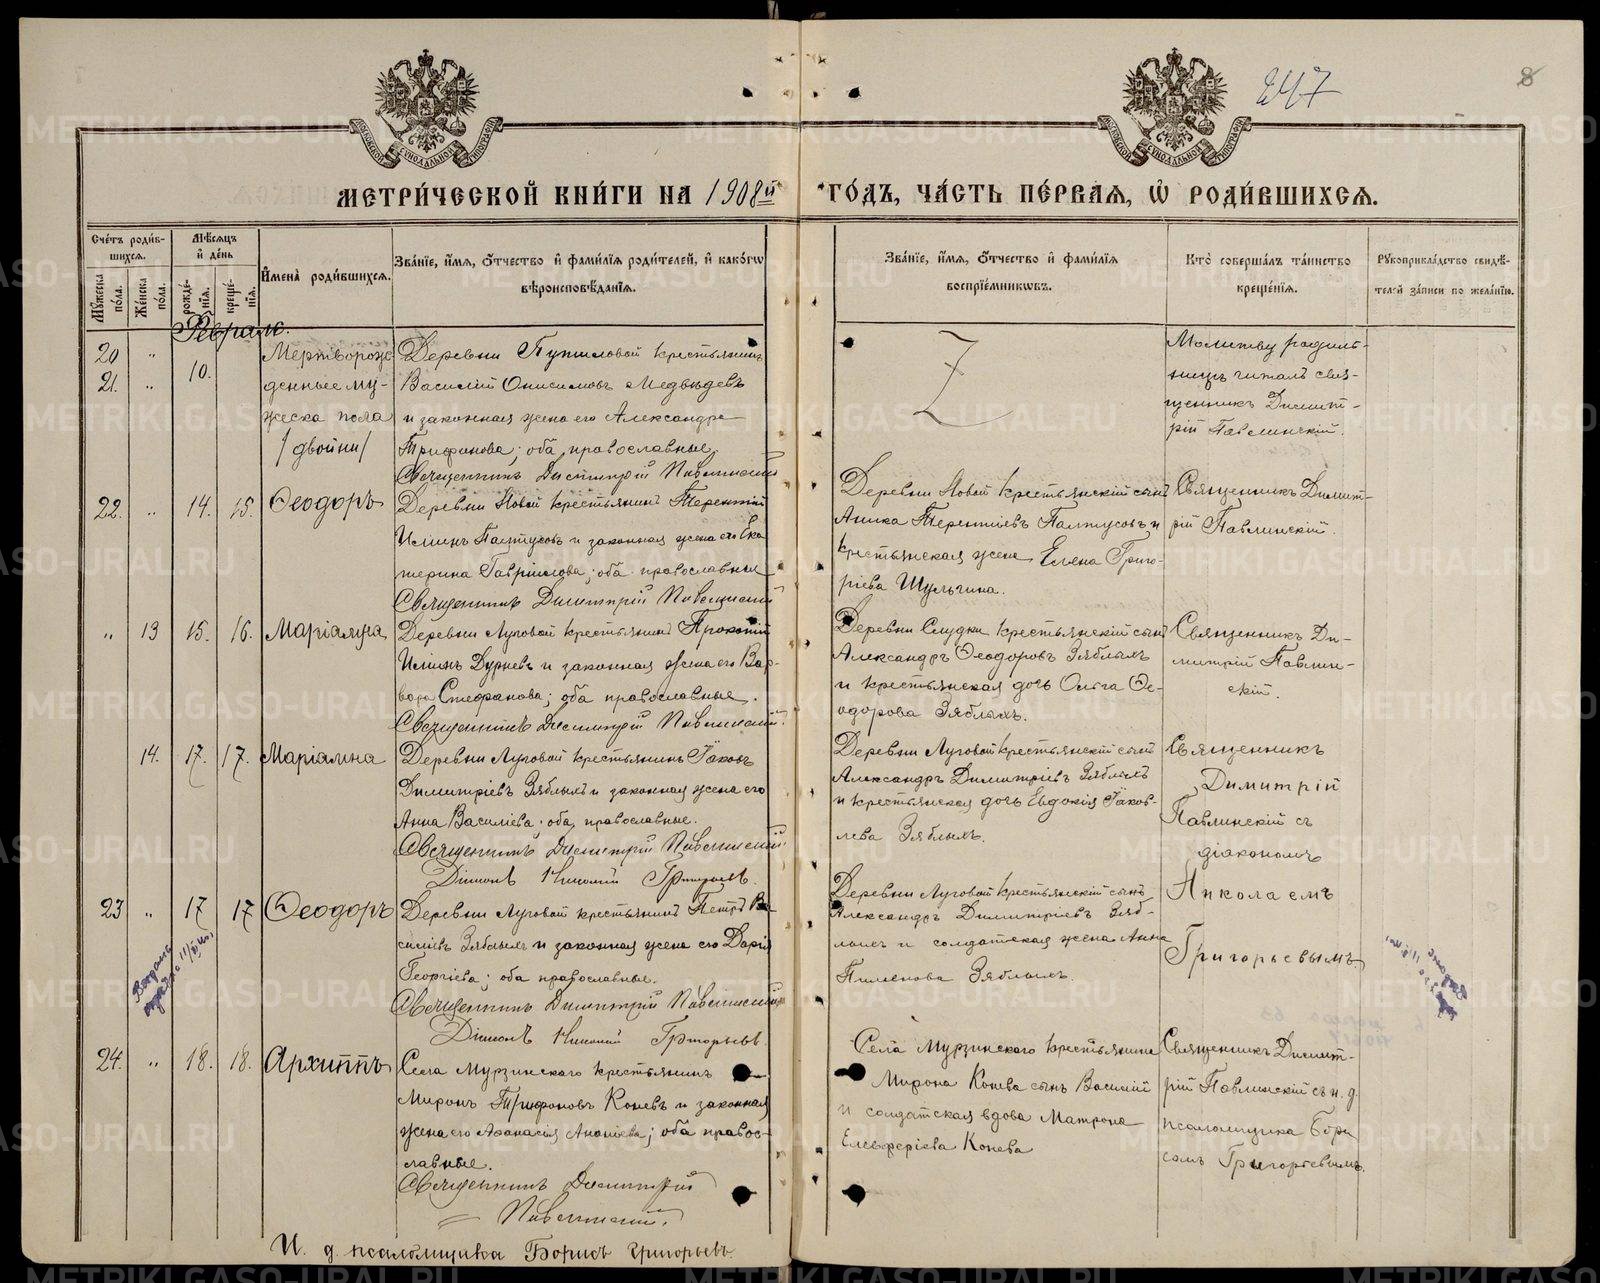 247
8
МЕТРИ́ЧЕСКОЙ КНИ́ГИ НА 1908й
ГО́ДЪ, ЧА́СТЬ ПЕ́РВАЯ, Ѡ҆ РОДИ́ВШИХСЯ.
Счётъ роди́в-
шихся.
Мꙋжеска по́ла.
Же́нска по́ла.
Мѣ́сяцъ и҆ де́нь
рожде́-нїя.
креще́-нїя.
И҆мена̀ роди́вшихся.
Зва́нїе, и҆́мя, ѻ҆́тчество и҆ фами́лїя роди́телей, и҆ како́гѡ
вѣроисповѣ́данїя.
Зва́нїе, и҆́мя, ѻ҆́тчество и҆ фами́лїя
воспрїе́мникѡвъ.
Кто̀ соверша́лъ та́инство
креще́нїя.
Рꙋкоприкла́дство свидѣ́-
телей за́писи по жела́нїю.
Февраль.
20 " 10.
21. "
Мертворож-
денные му-
жеска пола
/двойни/
Деревни Путиловой крестьянинъ
Василій Онисимовъ Медвѣдевъ
и законная жена его Александра
Трифонова; оба православные.
Священникъ Димитрій Павлинскій
Молитву родиль-
ницѣ читалъ свя-
щенникъ Димит-
рій Павлинскій.
22. " 14. 15. Ѳеодоръ
Деревни Новой крестьянинъ Терентій
Илиинъ Палтусовъ и законная жена его Ека-
терина Гавріилова; оба православные
Священникъ Димитрій Павлинскій
Деревни Новой крестьянскій сынъ
Аника Терентіевъ Палтусовъ и
крестьянская жена Елена Григо-
рієва Шульгина.
Священникъ Димит-
рій Павлинскій.
" 13 15. 16. Маріамна
Деревни Луговой крестьянинъ Прокопій
Илиинъ Дурневъ и законная жена его Вар-
вара Стефанова; оба православные.
Священникъ Димитрій Павлинскій.
Деревни Слудки крестьянскій сынъ
Александръ Ѳеодоровъ Зяблыхъ
и крестьянская дочь Ольга Ѳе-
одорова Зяблыхъ.
Священникъ Ди-
митрій Павлин-
скій.
14. 17. 17. Маріамна
Деревни Луговой крестьянинъ Іаковъ
Димитріевъ Зяблыхъ и законная жена его
Анна Василіева; оба православные.
Священникъ Димитрій Павлинскій
Діаконъ Николай Григорьевъ.
Деревни Луговой крестьянскій сынъ
Александръ Димитріевъ Зяблыхъ
и крестьянская дочь Евдокія Іаков-
лева Зяблыхъ.
Священникъ
Димитрій
Павлинскій съ
діакономъ
Николаемъ
Григорьевымъ.
23 " 17 17 Ѳеодоръ
Деревни Луговой крестьянинъ Петръ Ва-
силіевъ Зяблыхъ и законная жена его Дарія
Георгіева; оба православные.
Священникъ Димитрій Павлинскій
Діаконъ Николай Григорьевъ
Деревни Луговой крестьянскій сынъ
Александръ Димитріевъ Зяб-
лыхъ и солдатская жена Анна
Пименова Зяблыхъ.
24. " 18. 18. Архиппъ
Села Мурзинскаго крестьянинъ
Миронъ Трифоновъ Коневъ и законная
жена его Аѳанасія Ананіева; оба правос-
лавные.
Священникъ Димитрій
Павлинскій.
Села Мурзинскаго крестьянина
Мирона Конева сынъ Василій
и солдатская вдова Матрона
Елевферіева Конева
Священникъ Димит-
рій Павлинскій съ и. д.
псаломщика Бори-
сомъ Григорьевымъ.
И. д. псаломщика Борисъ Григорьевъ.
METRIKI.GASO-URAL.RU